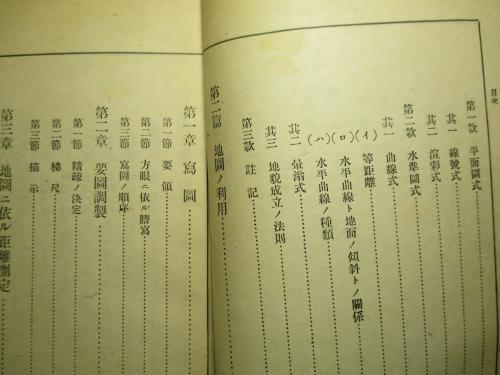 目次
第一款 平面圖式
其一 線號式
其二 渲彩式
第二款 水準圖式
其一 曲線式
(イ) 等距離
(ロ) 水平曲線ト地面ノ傾斜トノ關係
(ハ) 水平曲線ノ種類
其二 暈滃式
其三 地貌成立ノ法則
第三款 註記
第二篇 地圖ノ利用
第一章 寫圖
第一節 要領
第二節 方眼ニ依ル謄寫
第三節 寫圖ノ順序
第二章 要圖調製
第一節 精疎ノ決定
第二節 梯尺
第三節 描示
第三章 地圖ニ依ル距離測定